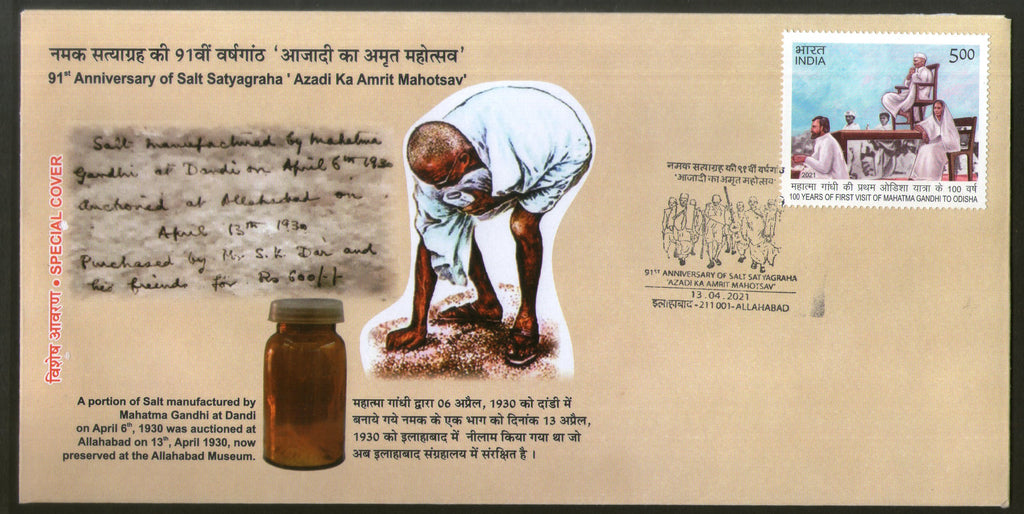 नमक सत्याग्रह की 91वीं वर्षगांठ 'आजादी का अमृत महोत्सव'
91st Anniversary of Salt Satyagraha ' Azadi Ka Amrit Mahotsav'
Salt manufactured by Mahatma
Gandhi at Dandi on April 6th 1930
Auctioned at Allahabad on
April 13th 1930
Purchased by Mr. S.K. Dar and
her friends for Rs 600/-/-
विशेष आवरण • SPECIAL COVER
A portion of Salt manufactured by
Mahatma Gandhi at Dandi
on April 6th, 1930 was auctioned at
Allahabad on 13th, April 1930, now
preserved at the Allahabad Museum.
महात्मा गांधी द्वारा 06 अप्रैल, 1930 को दांडी में
बनाये गये नमक के एक भाग को दिनांक 13 अप्रैल,
1930 को इलाहाबाद में नीलाम किया गया था जो
अब इलाहाबाद संग्रहालय में संरक्षित है ।
भारत 5.00
INDIA
2021
महात्मा गांधी की प्रथम ओडिशा यात्रा के 100 वर्ष
100 YEARS OF FIRST VISIT OF MAHATMA GANDHI TO ODISHA
नमक सत्याग्रह की ९१वीं वर्षगांठ
'आजादी का अमृत महोत्सव'
91ST ANNIVERSARY OF SALT SATYAGRAHA
'AZADI KA AMRIT MAHOTSAV'
13.04.2021
इलाहाबाद -211001-ALLAHABAD